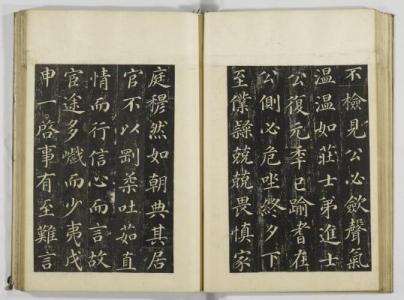 不檢見公必斂聲氣
溫溫如莊士弟進士
公復元秊已踰耆在
公側必危坐終夕下
至僕隸兢兢畏慎家
庭穆然如朝典其居
官不以剛柔吐茹直
情而行信心而言故
宦途多巇而少夷戊
申一啓事有至難言